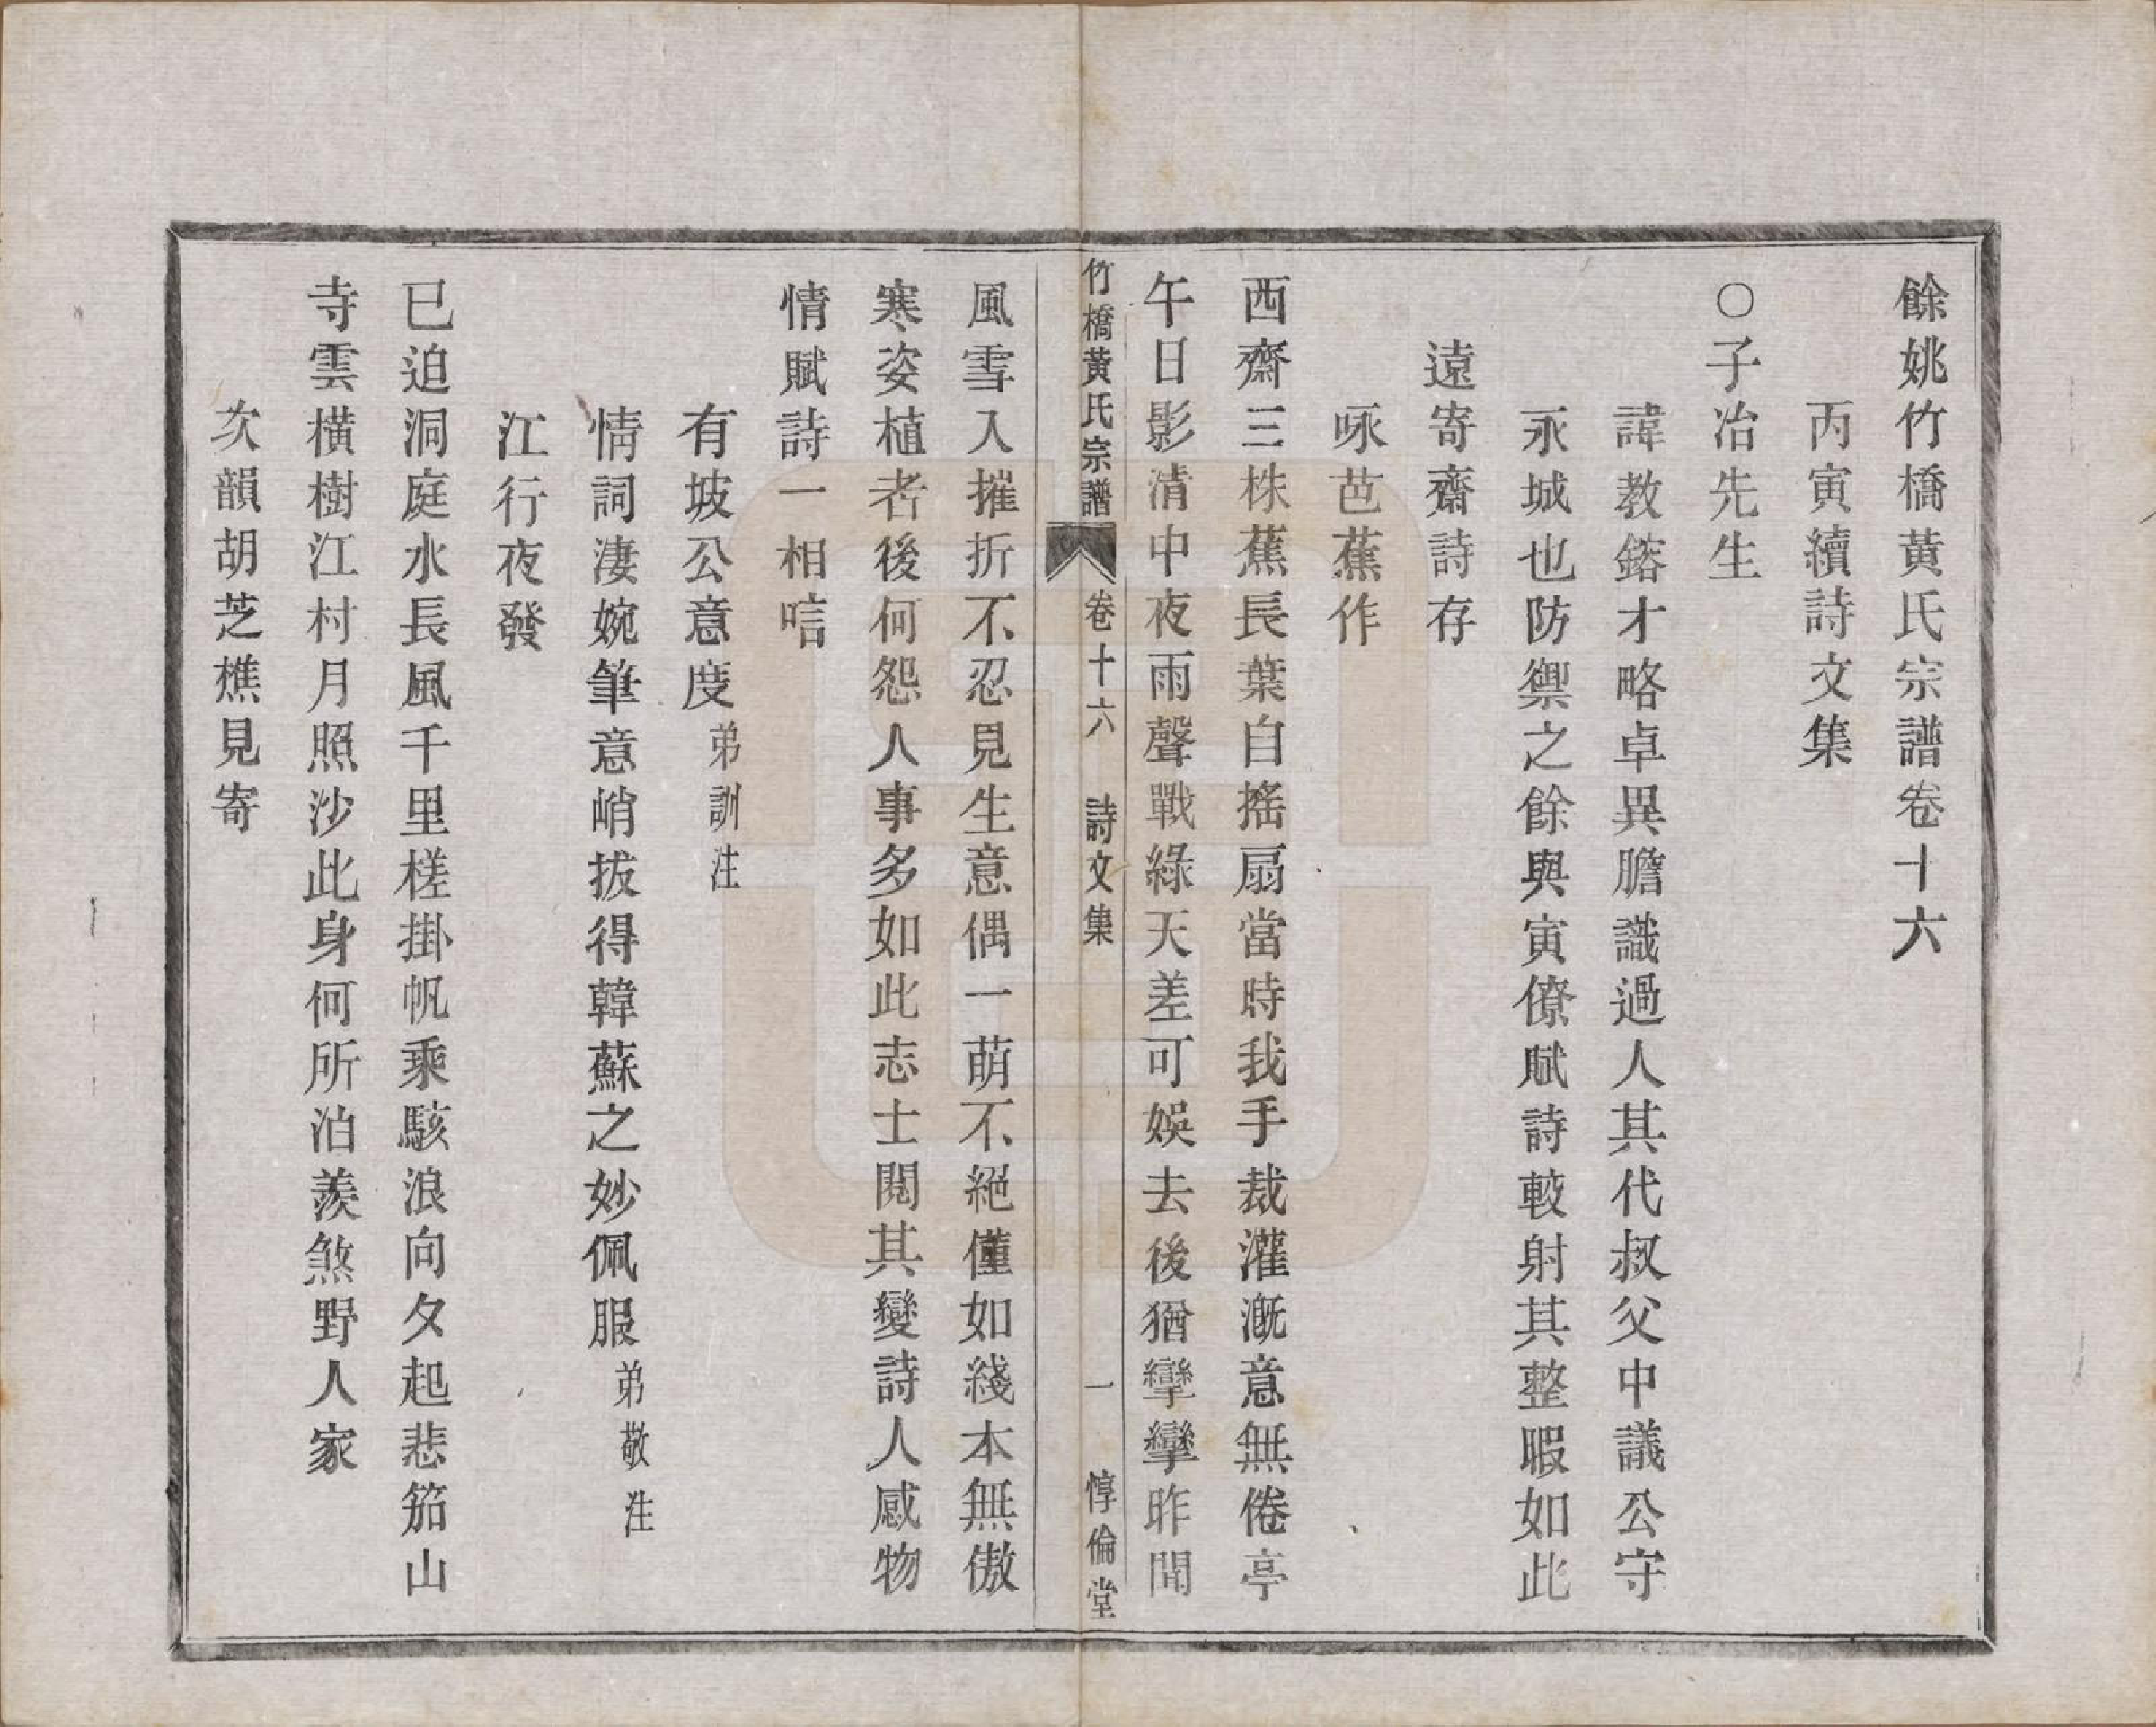 餘姚竹橋黄氏宗譜卷十六
丙寅續詩文集
○子冶先生
諱教鎔才略卓異膽識過人其代叔父中議公守
永城也防禦之餘與寅僚賦詩較射其整暇如此
遠寄齋詩存
咏芭蕉作
西齋三株蕉長葉自搖扇當時我手裁灌漑意無倦亭
午日影清中夜雨聲戰綠天差可娛去後猶攣攣昨聞
竹橋黄氏宗譜 卷十六 詩文集 一 惇倫堂
風雪入摧折不忍見生意偶一萌不絕僅如綫本無傲
寒姿植者後何怨人事多如此志士閱其變詩人感物
情賦詩一相唁
有坡公意度弟訓注
情詞淒婉筆意峭拔得韓蘇之妙佩服弟敬注
江行夜發
已迫洞庭水長風千里槎掛帆乘駭浪向夕起悲笳山
寺雲橫樹江村月照沙此身何所泊羨煞野人家
次韻胡芝樵見寄